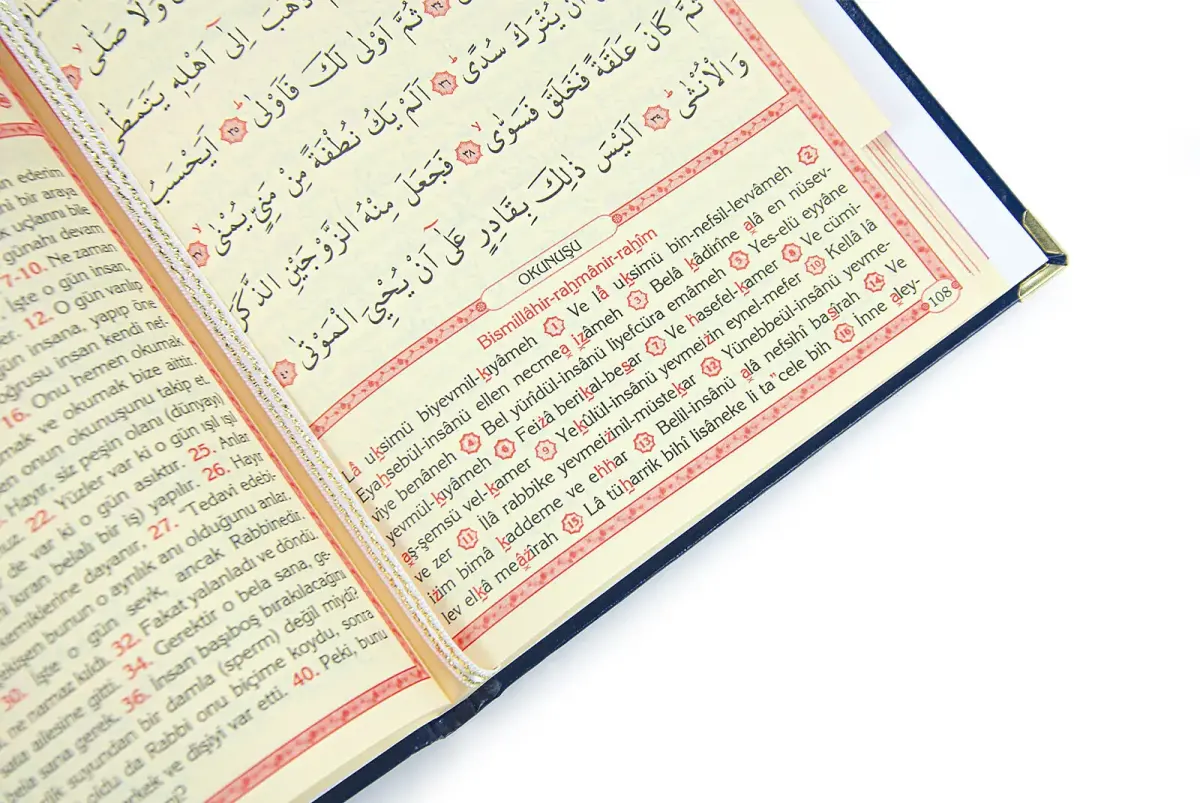 ün ederim.
ni bir araya
k uçlarını bile
günahı devam
7-10. Ne zaman
İşte o gün insan,
12. O gün varılıp
gün insana, yapıp öne
oğrusu insan kendi nef-
16. Onu hemen okumak
mak ve okumak bize aittir.
en onun okunuşunu takip et.
Hayır, siz peşin olanı (dünyayı)
22. Yüzler var ki o gün ışıl ışıl
de var ki o gün asıktır. 25. Anlar
kıran belalı bir iş) yapılır. 26. Hayır
kemiklerine dayanır, 27. "Tedavi edebi-
bunun o ayrılık anı olduğunu anlar.
30. İşte o gün sevk, ancak Rabbinedir.
ne namaz kıldı. 32. Fakat yalanladı ve döndü.
ailesine gitti. 34. Gerektir o bela sana, ge-
bela sana gerek. 36. İnsan başıboş bırakılacağını
suyundan bir damla (sperm) değil miydi?
oldu da Rabbi onu biçime koydu, sonra
erkek ve dişiyi var etti. 40. Peki, bunu
وَلَا صَلّٰى ٣١
ذَهَبَ اِلٰٓى اَهْلِه۪ يَتَمَطّٰى
٣٤ ثُمَّ اَوْلٰى لَكَ فَاَوْلٰى ٣٥ اَيَحْسَبُ
اَنْ يُتْرَكَ سُدًى ٣٦ اَلَمْ يَكُ نُطْفَةً مِنْ مَنِيٍّ يُمْنٰى ٣٧
ثُمَّ كَانَ عَلَقَةً فَخَلَقَ فَسَوّٰى ٣٨ فَجَعَلَ مِنْهُ الزَّوْجَيْنِ الذَّكَرَ
وَالْاُنْثٰى ٣٩ اَلَيْسَ ذٰلِكَ بِقَادِرٍ عَلٰٓى اَنْ يُحْيِيَ الْمَوْتٰى ٤٠
OKUNUŞU
Bismillâhir-rahmânir-rahîm
Lâ uksimü biyevmil-kıyâmeh 1 Ve lâ uksimü bin-nefsil-levvâmeh 2
Eyahsebül-insânü ellen necmea ızâmeh 3 Belâ kâdirîne alâ en nüsev-
viye benâneh 4 Bel yürîdül-insânü liyefcüra emâmeh 5 Yes-elü eyyâne
yevmül-kıyâmeh 6 Feizâ berikal-besar 7 Ve hasefel-kamer 8 Ve cümi-
aş-şemsü vel-kamer 9 Yekûlül-insânü yevmeizin eynel-mefer 10 Kellâ lâ
ve zer 11 İlâ rabbike yevmeizinil-müstekar 12 Yünebbeül-insânü yevme-
izim bimâ kaddeme ve ehhar 13 Belil-insânü alâ nefsihî basîrah 14 Ve
lev elkâ meâzîrah 15 Lâ tüharrik bihî lisâneke li ta"cele bih 16 İnne aley-
108